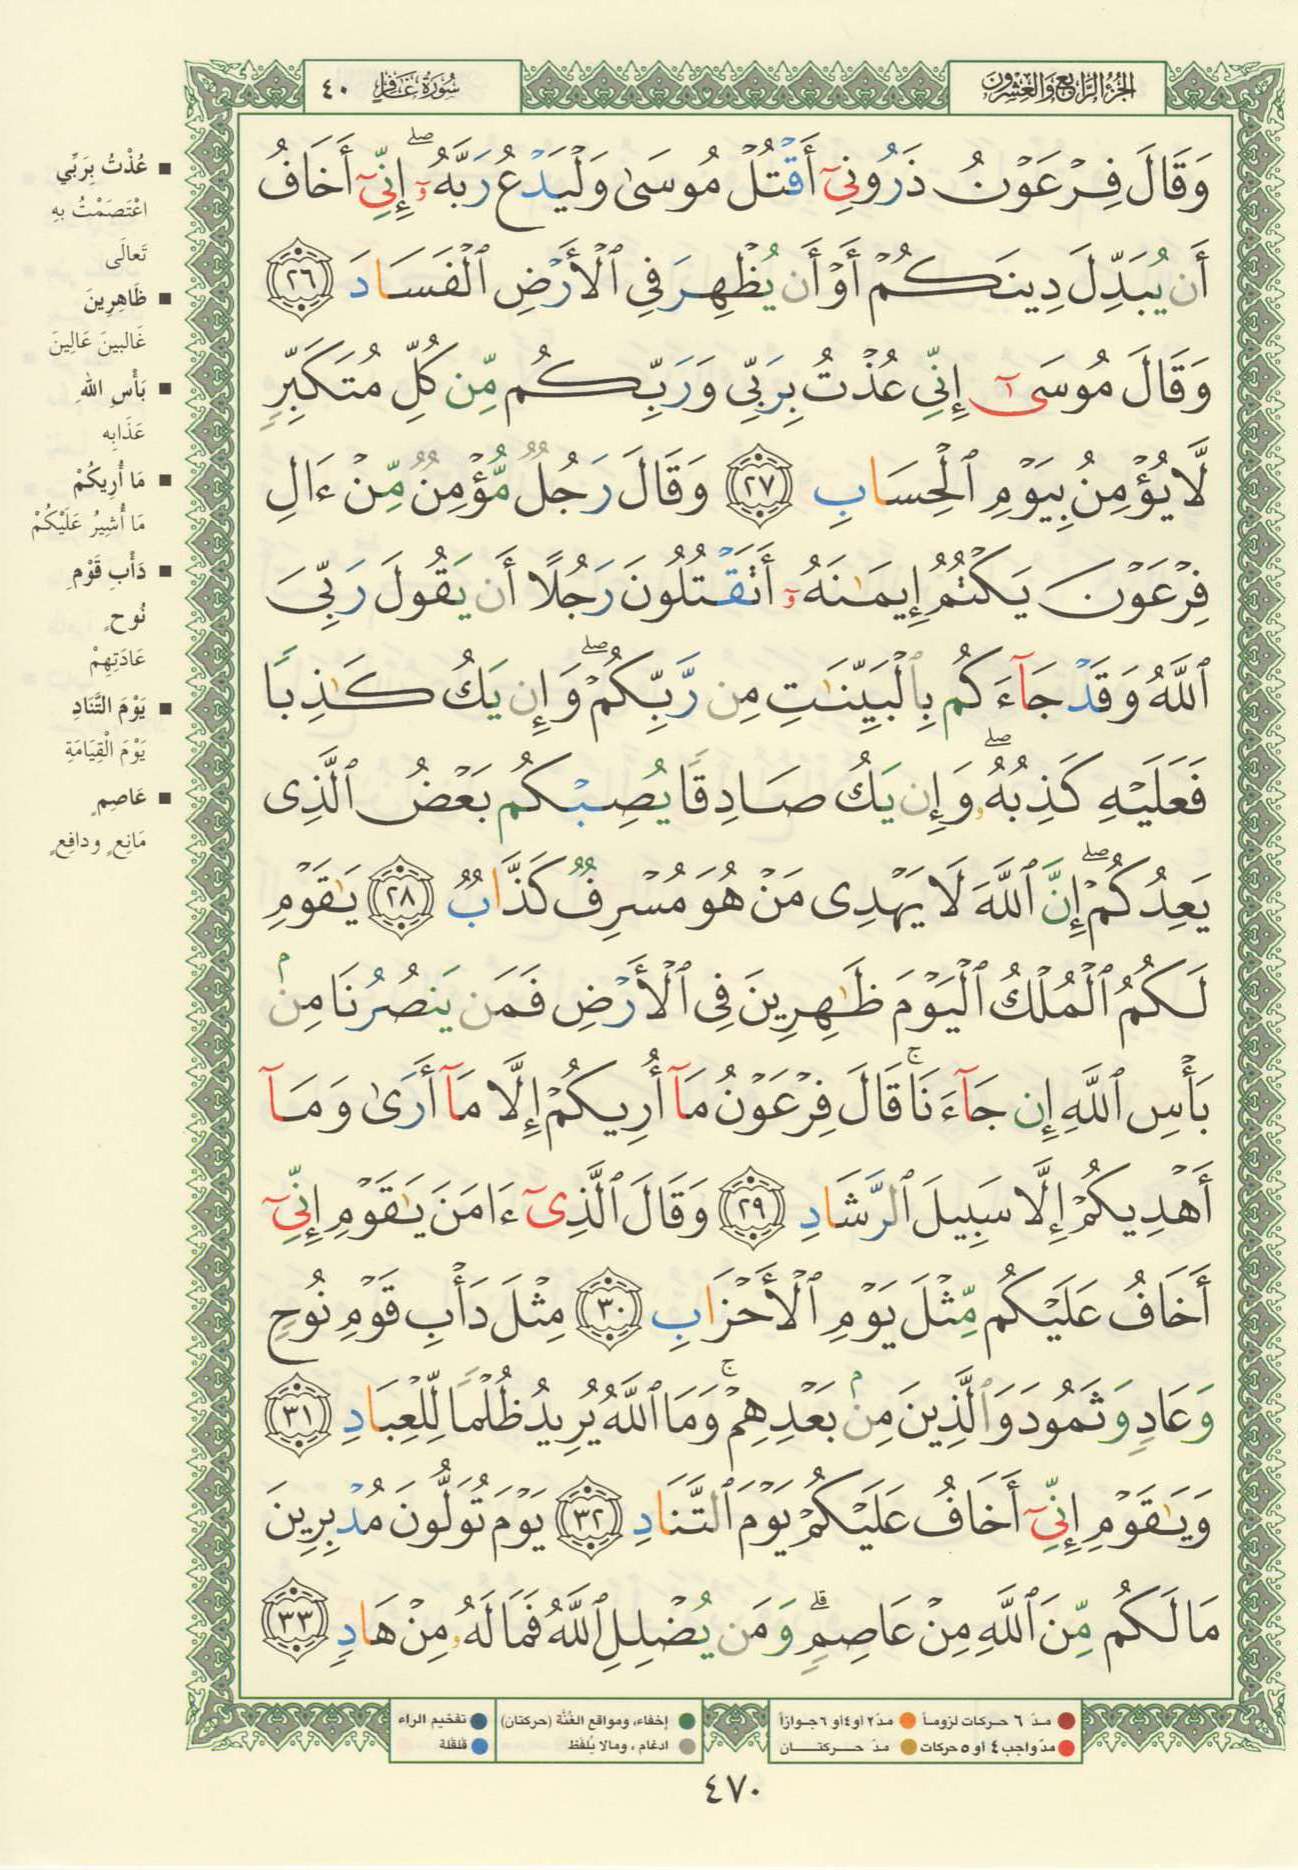 الجزء الرابع والعشرون
سورة غافر ٤٠
وَقَالَ فِرْعَوْنُ ذَرُونِىٓ أَقْتُلْ مُوسَىٰ وَلْيَدْعُ رَبَّهُۥٓ ۖ إِنِّىٓ أَخَافُ
أَن يُبَدِّلَ دِينَكُمْ أَوْ أَن يُظْهِرَ فِى ٱلْأَرْضِ ٱلْفَسَادَ ٢٦
وَقَالَ مُوسَىٰٓ إِنِّى عُذْتُ بِرَبِّى وَرَبِّكُم مِّن كُلِّ مُتَكَبِّرٍ
لَّا يُؤْمِنُ بِيَوْمِ ٱلْحِسَابِ ٢٧ وَقَالَ رَجُلٌ مُّؤْمِنٌ مِّنْ ءَالِ
فِرْعَوْنَ يَكْتُمُ إِيمَـٰنَهُۥٓ أَتَقْتُلُونَ رَجُلًا أَن يَقُولَ رَبِّىَ
ٱللَّهُ وَقَدْ جَآءَكُم بِٱلْبَيِّنَـٰتِ مِن رَّبِّكُمْ ۖ وَإِن يَكُ كَـٰذِبًا
فَعَلَيْهِ كَذِبُهُۥ ۖ وَإِن يَكُ صَادِقًا يُصِبْكُم بَعْضُ ٱلَّذِى
يَعِدُكُمْ ۖ إِنَّ ٱللَّهَ لَا يَهْدِى مَنْ هُوَ مُسْرِفٌ كَذَّابٌ ٢٨ يَـٰقَوْمِ
لَكُمُ ٱلْمُلْكُ ٱلْيَوْمَ ظَـٰهِرِينَ فِى ٱلْأَرْضِ فَمَن يَنصُرُنَا مِنۢ
بَأْسِ ٱللَّهِ إِن جَآءَنَا ۚ قَالَ فِرْعَوْنُ مَآ أُرِيكُمْ إِلَّا مَآ أَرَىٰ وَمَآ
أَهْدِيكُمْ إِلَّا سَبِيلَ ٱلرَّشَادِ ٢٩ وَقَالَ ٱلَّذِىٓ ءَامَنَ يَـٰقَوْمِ إِنِّىٓ
أَخَافُ عَلَيْكُم مِّثْلَ يَوْمِ ٱلْأَحْزَابِ ٣٠ مِثْلَ دَأْبِ قَوْمِ نُوحٍ
وَعَادٍ وَثَمُودَ وَٱلَّذِينَ مِنۢ بَعْدِهِمْ ۚ وَمَا ٱللَّهُ يُرِيدُ ظُلْمًا لِّلْعِبَادِ ٣١
وَيَـٰقَوْمِ إِنِّىٓ أَخَافُ عَلَيْكُمْ يَوْمَ ٱلتَّنَادِ ٣٢ يَوْمَ تُوَلُّونَ مُدْبِرِينَ
مَا لَكُم مِّنَ ٱللَّهِ مِنْ عَاصِمٍ ۗ وَمَن يُضْلِلِ ٱللَّهُ فَمَا لَهُۥ مِنْ هَادٍ ٣٣
■ عُذْتُ بِرَبِّي
اعْتَصَمْتُ بِهِ
تَعالَى
■ ظَاهِرِينَ
غَالبينَ عَالِينَ
■ بَأْسِ اللهِ
عَذَابِه
■ مَا أُرِيكُمْ
مَا أُشِيرُ عَلَيْكُمْ
■ دَأْبِ قَوْمِ
نُوحٍ
عَادَتِهِمْ
■ يَوْمَ التَّنَادِ
يَوْمَ الْقِيَامَةِ
■ عَاصِمٍ
مَانِعٍ ودافِعٍ
مدّ ٦ حركات لزوماً مدّ ٢ أو ٤ أو ٦ جوازاً
مدّ واجب ٤ أو ٥ حركات مدّ حركتان
إخفاء، ومواقع الغُنَّة (حركتان)
ادغام، وما لا يُلفَظ
تفخيم الراء
قلقلة
٤٧٠